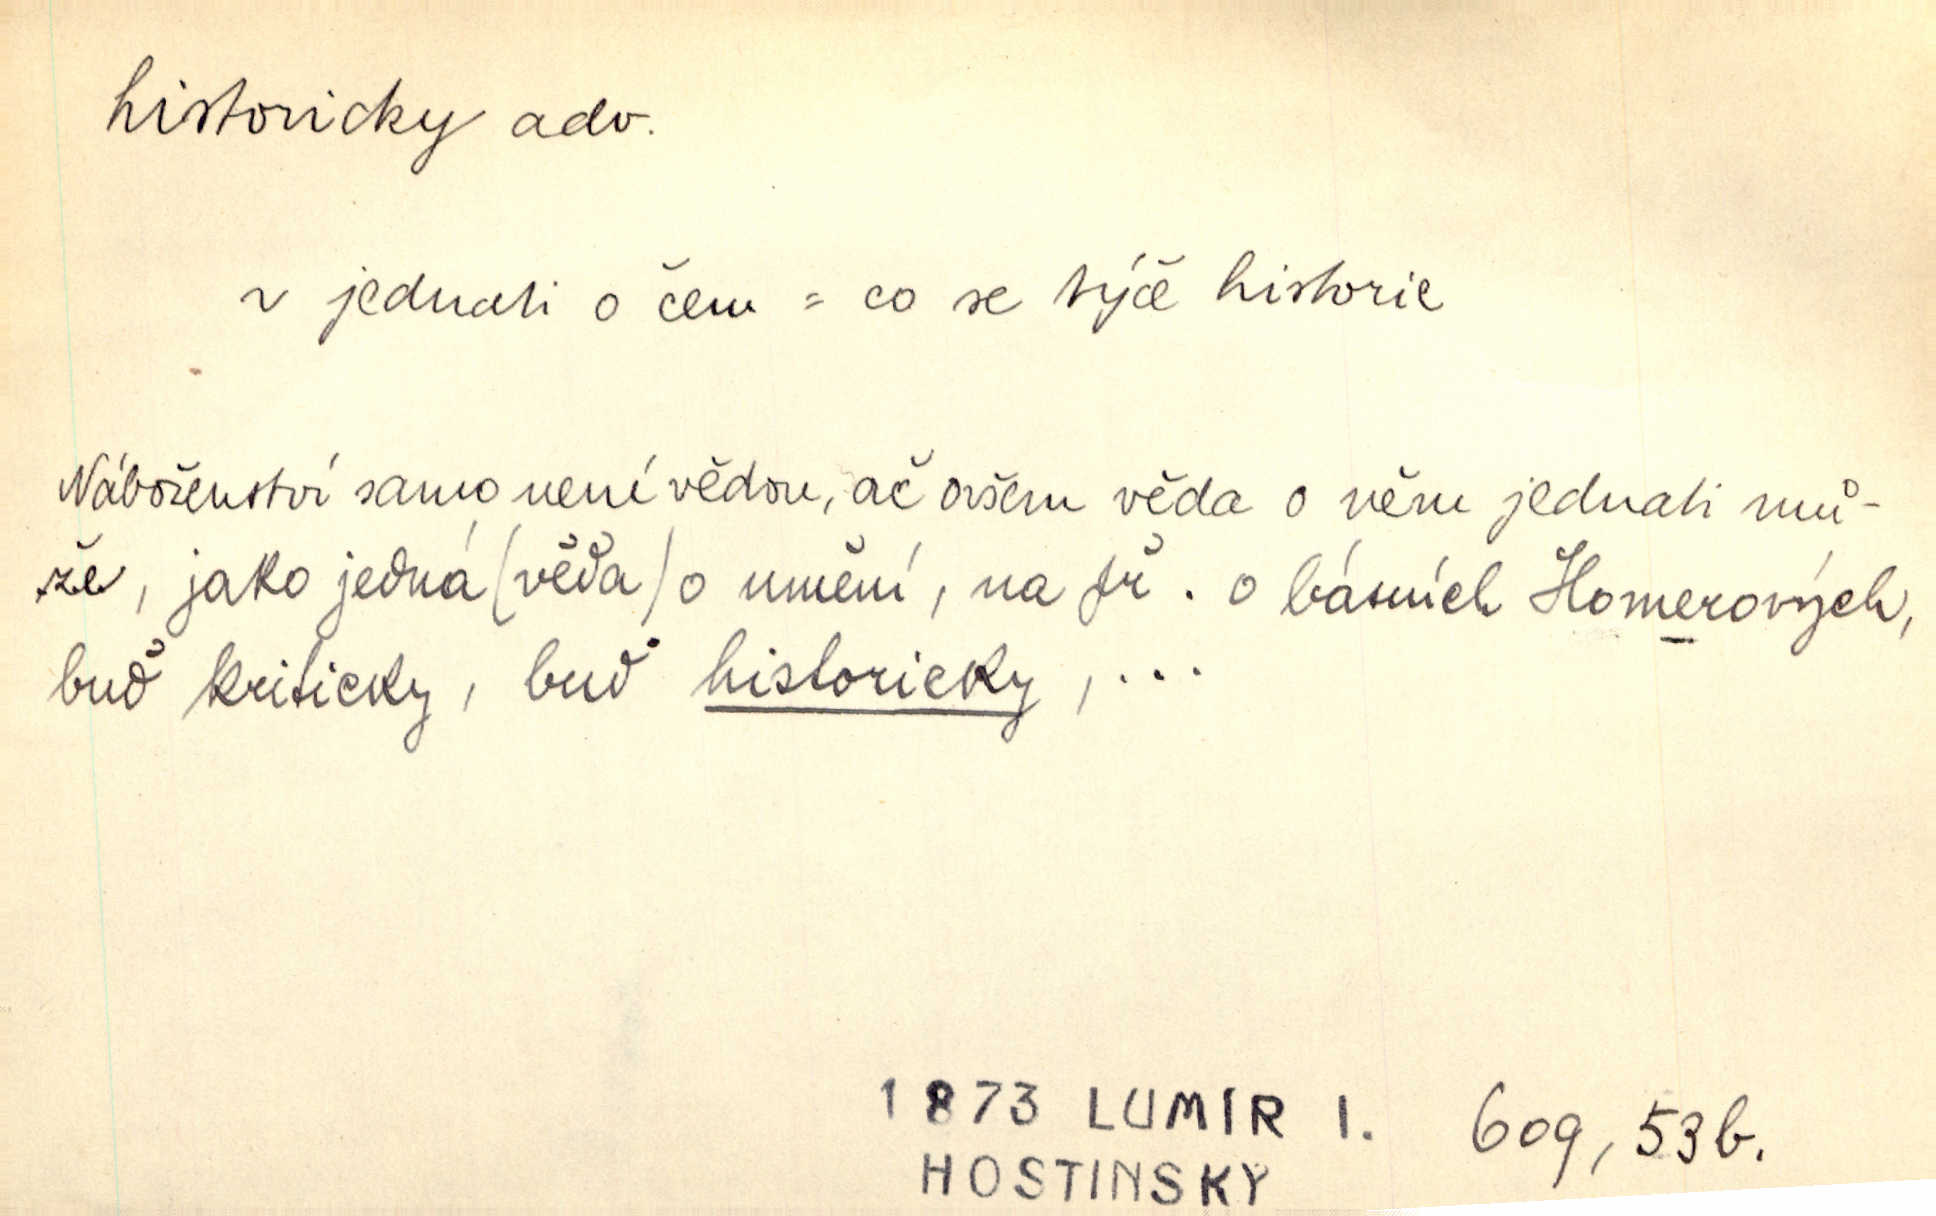 historicky adv.
v jednati o čem = co se týče historie
Náboženství samo není vědou, ač ovšem věda o něm jednati mů-
že, jako jedná (věda) o umění, na př. o básních Homerových,
buď kriticky, buď historicky, ...
1873 LUMÍR I. 609, 53 b.
HOSTINSKÝ